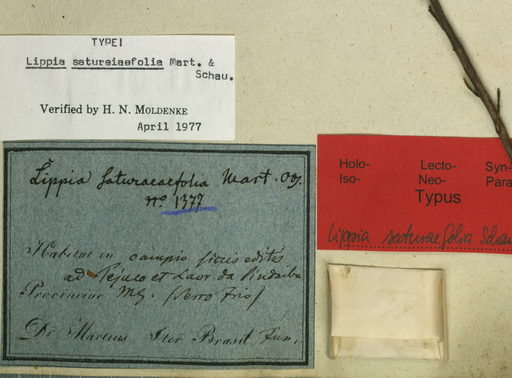 TYPE!
Lippia satureiaefolia Mart. &
Schau.
Verified by H. N. MOLDENKE
April 1977
Lippia saturaeaefolia Mart.
nº 1377
Habitat in campis siccis editis
ad Tejuco et Lavr. da Pindaiba
Provinciae MG. (Serro Frio)
Dr Martius Iter Brasil Jun.
Holo- Lecto- Syn-
Iso- Neo- Para
Typus
Lippia saturaefolia Schau